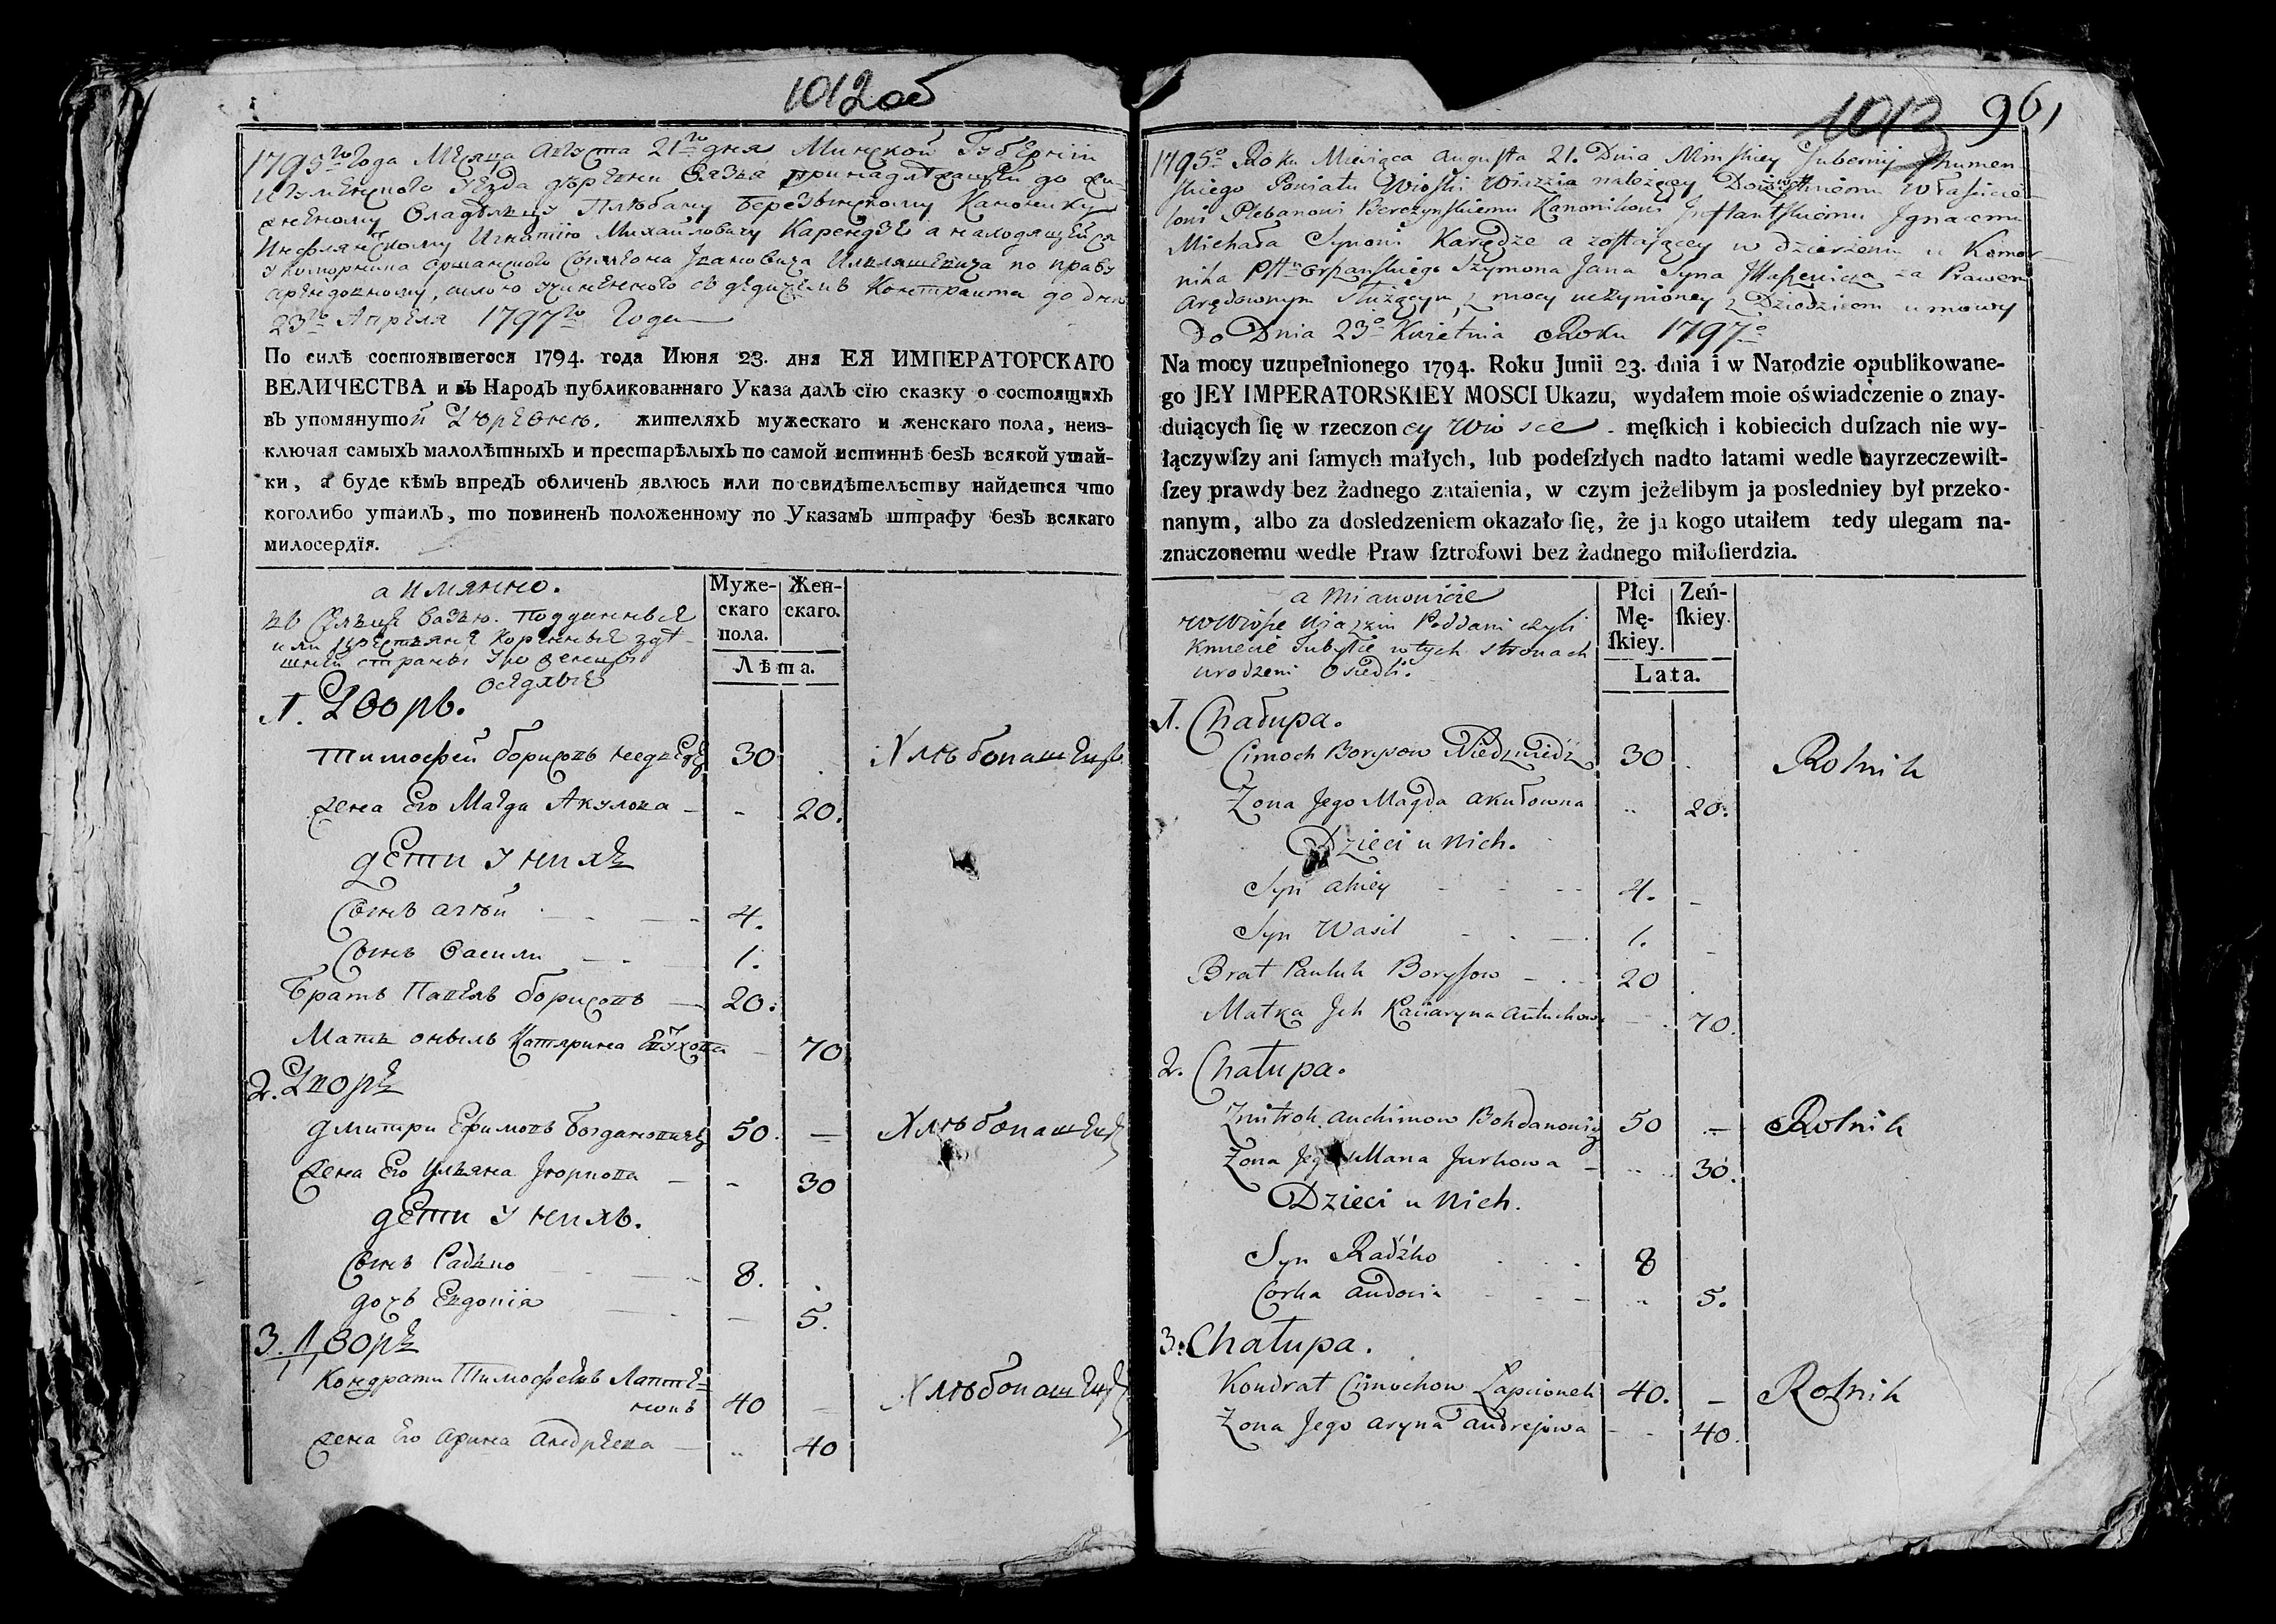 1012об
1795го Года Месяца Августа 21го дня Минской Губернiи
Игуменского Уезда деревни Вязья принадлежащей до
Владельцу Плебану Березынскому Канонику
Инфлянтскому Игнатiю Михайловичу Карендзе а находящейся
у коморника Оршанского Iвановича по праву
арендовному, силою учиненного с дедичем Контракта до дня
23го Апреля 1797го Года
По силѣ состоявшегося 1794. года Июня 23. дня ЕЯ ИМПЕРАТОРСКАГО
ВЕЛИЧЕСТВА и въ Народъ публикованнаго Указа далъ сїю сказку о состоящихъ
въ упомянутой деревню. жителяхъ мужескаго и женскаго пола, неиз-
ключая самыхъ малолѣтныхъ и престарѣлыхъ по самой истиннѣ безъ всякой утай-
ки, а буде кѣмъ впредъ обличенъ явлюсь или по свидѣтельству найдется что
коголибо утаилъ, то повиненъ положенному по Указамъ штрафу безъ всякаго
милосердїя.
а имянно.
въ Вазью. Подданные
или крестьяне коренные здѣ-
шней страны уроженцы
оседлые
Муже-
скаго
пола.
Жен-
скаго.
Лѣта.
1. Дворъ.
Тимофей борисовъ медведз 30 Хлѣбопашецъ
жена Его Магда Акулова - - 20.
дети у нихъ
Сынъ агѣй 4.
Сынъ василии 1.
Братъ Павелъ борисовъ 20.
Мать оныхъ Катярина - 70
2. Дворъ
дмитри Ефимовъ богдановичъ 50. — Хлѣбопашецъ
жена Его Ульяна Iюркова - 30
дети у нихъ.
Сынъ Радько 8.
дочь Евдокiя — 5.
3. Дворъ
Кондрати Тимофеевъ Лапте-
нокъ 40 Хлѣбопашецъ
жена Его арина андреева 40
1013 961
1795o Roku Miesiąca Augusta 21. Dnia Minskiey Gubernij Jhumen-
skiego Powiatu Wioski Wiazzia należącey Dożywotniemu Właścicie-
lowi Plebanowi Berezynskiemu Kanonikowi Inflantskiemu Ignacemu
Michała Synowi Karędze a zostającey w dzierżeniu u Komor-
nika Pttu Orszanskiego Szymona Jana Syna za Prawem
Arędownym służącym, z mocy uczynioney z Dziedzicem umowy
do Dnia 23o Kwietnia Roku 1797o
Na mocy uzupełnionego 1794. Roku Junii 23. dnia i w Narodzie opublikowane-
go JEY IMPERATORSKIEY MOSCI Ukazu, wydałem moie oświadczenie o znay-
duiących ſię w rzeczoney Wiosce męſkich i kobiecich duſzach nie wy-
łączywſzy ani ſamych małych, lub podeſzłych nadto latami wedle nayrzeczewiſt-
ſzey prawdy bez żadnego zataienia, w czym jeżelibym ja posledniey był przeko-
nanym, albo za dosledzeniem okazało ſię, że ja kogo utaiłem tedy ulegam na-
znaczonemu wedle Praw ſztrofowi bez żadnego miłoſierdzia.
a mianowicie
w Wiosce Wiazzin Poddani czyli
Kmiecie Tubylce w tych stronach
urodzeni Osiedli.
Płci
Mę-
ſkiey.
Zeń-
ſkiey.
Lata.
1. Chałupa.
Cimoch Borysow Niedzwiedz 30 Rolnik
Żona Jego Magda Akułowna 20.
Dzieci u nich.
Syn Ahiey 4.
Syn Wasil 1.
Brat Pauluk Borysow 20
Matka Jch Kaciaryna Autuchowa 70.
2. Chałupa.
Zmitrok Auchimow Bohdanowicz 50 Rolnik
Żona Jego Ullana Jurkowa 30.
Dzieci u nich.
Syn Radźko 8
Corka Audocia 5.
3. Chałupa.
Kondrat Cimochow Łapcionek 40. Rolnik
Żona Jego Aryna Andrejowa 40.